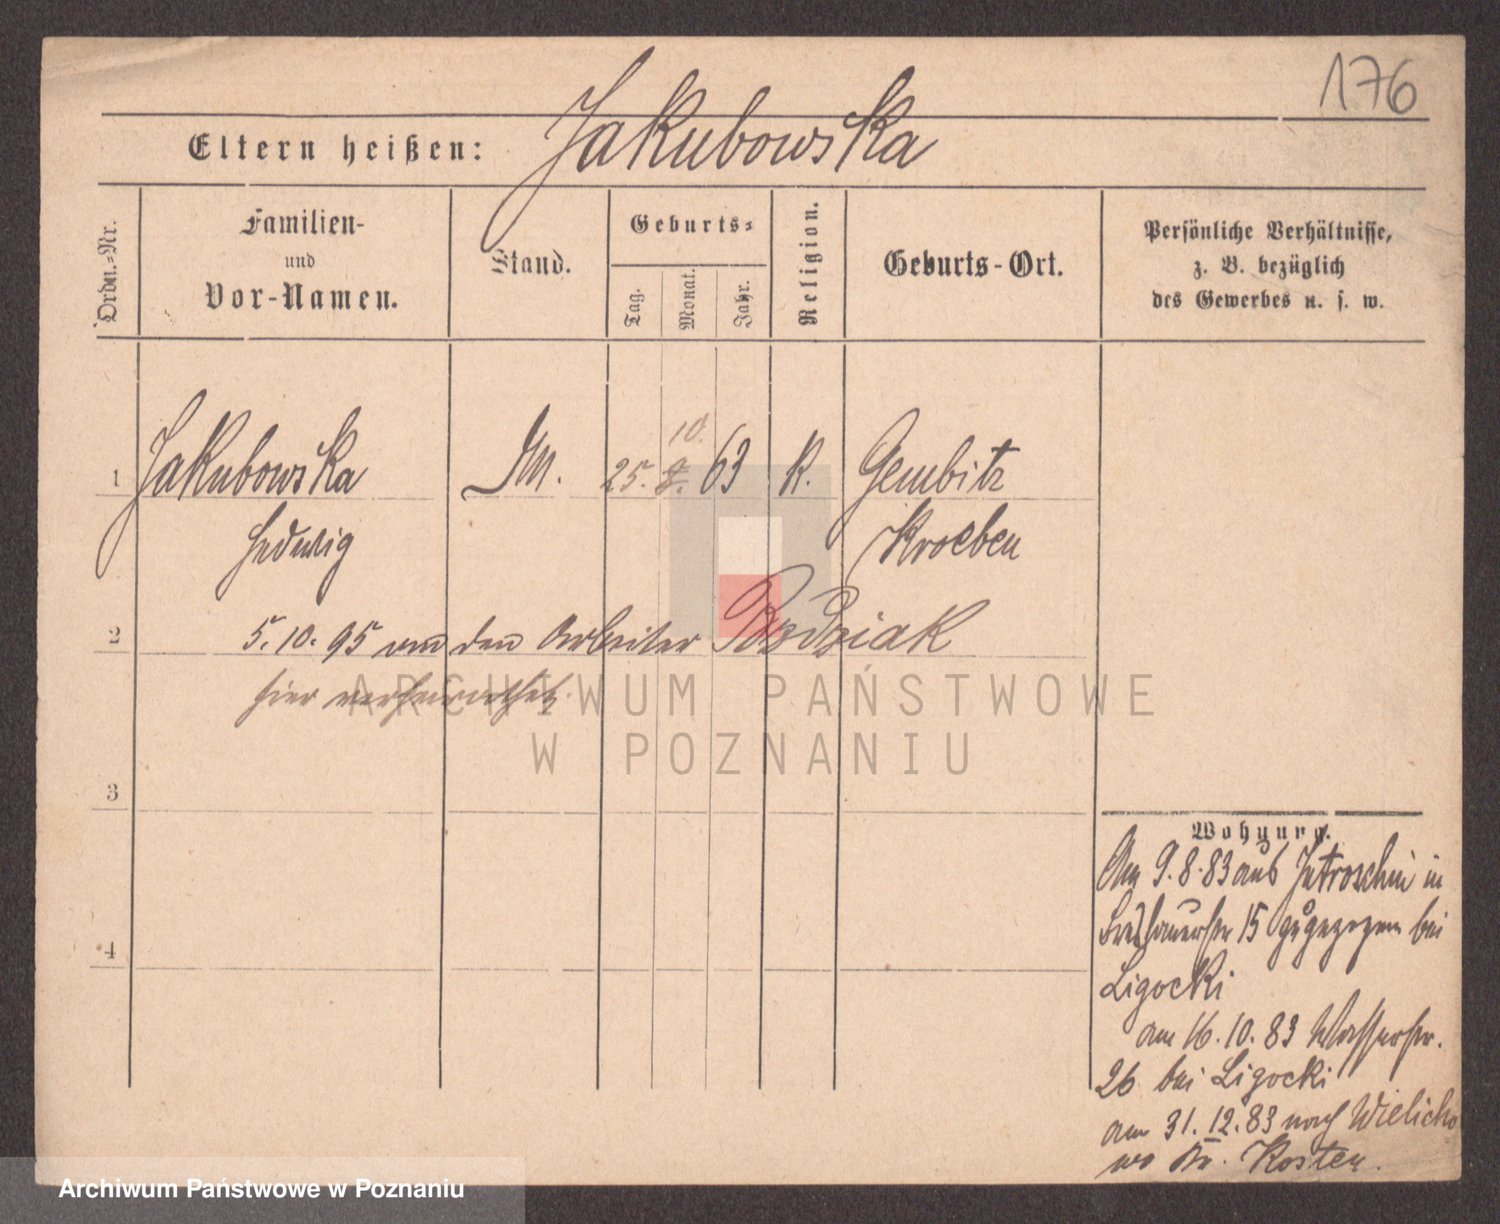 176
Eltern heißen: Jakubowska
Ordn.=Nr.
Familien-
und
Vor-Namen.
Stand.
Geburts=
Tag.
Monat.
Jahr.
Religion.
Geburts-Ort.
Persönliche Verhältnisse,
z. B. bezüglich
des Gewerbes u. s. w.
10.
1 Jakubowska 25. 8. 63 K. Gembitz
Hedwig Kroeben
2 5. 10. 95 den Arbeiter
hier verheirathet.
ARCHIWUM PAŃSTWOWE
W POZNANIU
3
Wohnung.
Am 9. 8. 83 aus Jutroschin in
Breslauerstr 15 zugezogen bei
4
Ligocki
am 16. 10. 83 Wasserstr.
26 bei Ligocki
am 31. 12. 83 nach Wielicho
wo Kr. Kosten.
Archiwum Państwowe w Poznaniu